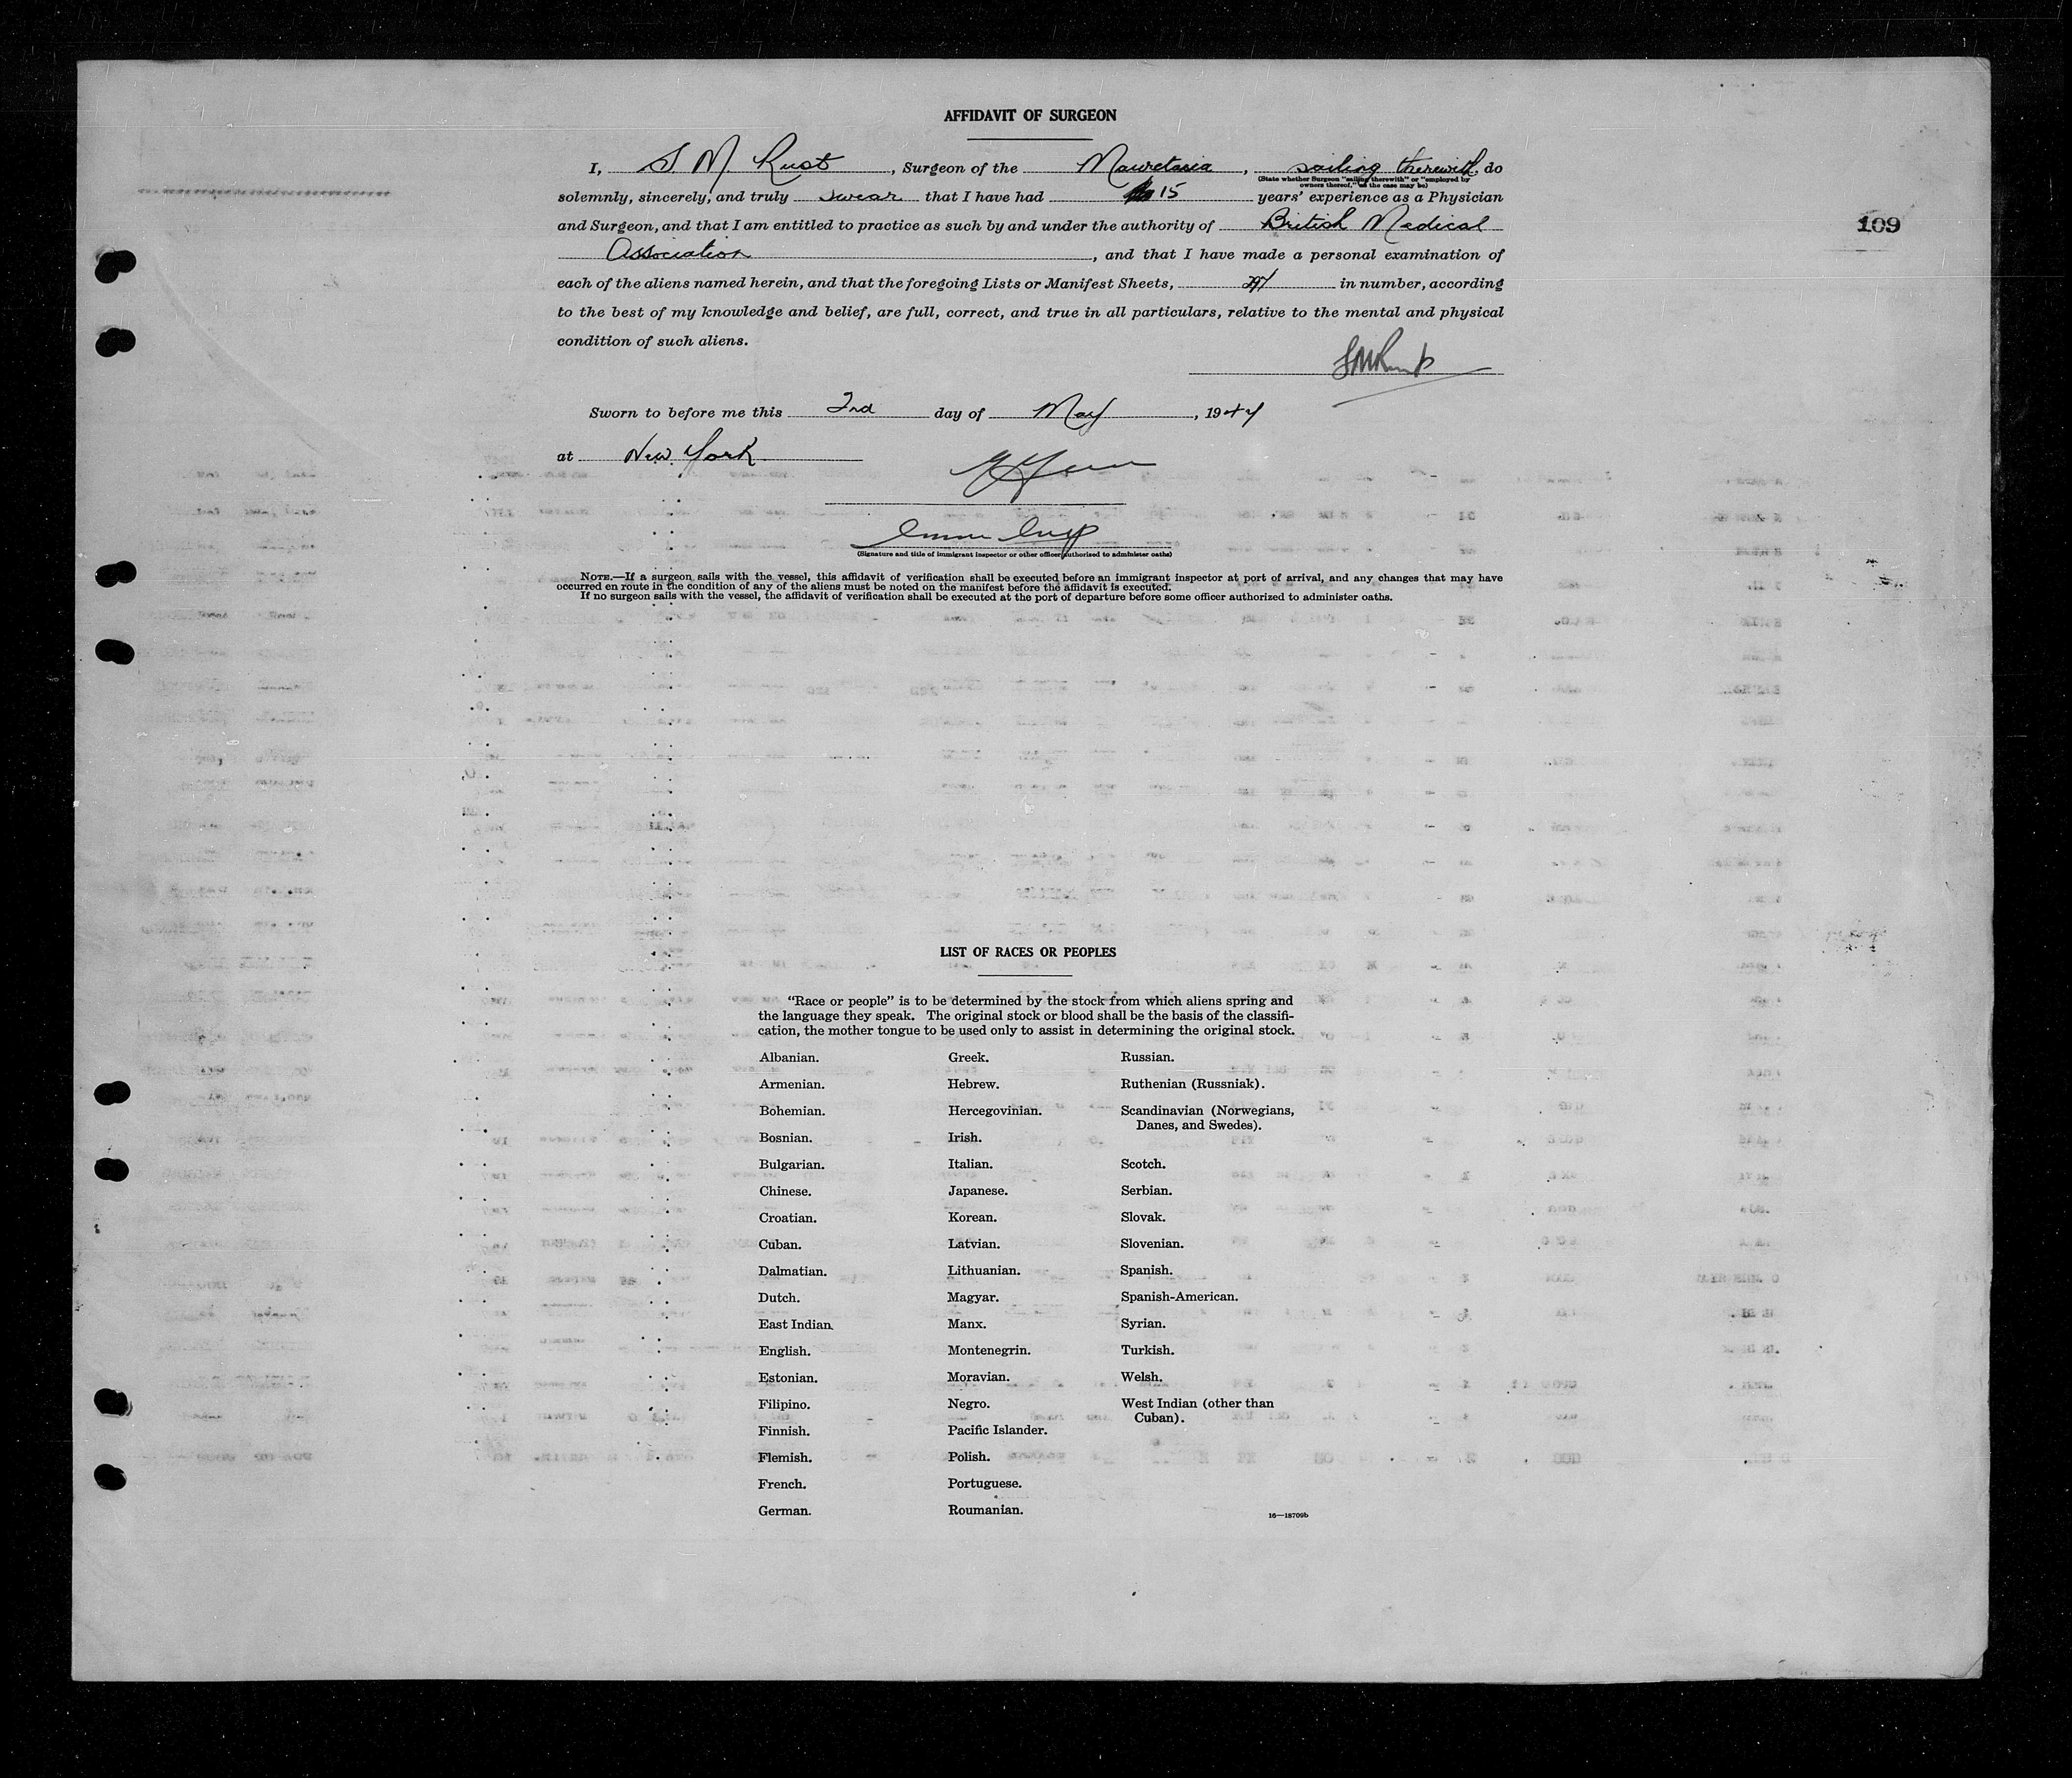 AFFIDAVIT OF SURGEON
I, S. M. Rust, Surgeon of the Mauretania, sailing therewith, do
(State whether Surgeon "sailing therewith" or "employed by
owners thereof," as the case may be)
solemnly, sincerely, and truly swear that I have had 15 years' experience as a Physician
109
and Surgeon, and that I am entitled to practice as such by and under the authority of British Medical
Association, and that I have made a personal examination of
each of the aliens named herein, and that the foregoing Lists or Manifest Sheets, in number, according
to the best of my knowledge and belief, are full, correct, and true in all particulars, relative to the mental and physical
condition of such aliens.
SMRust
Sworn to before me this 3rd day of May, 1944
at New York
(Signature and title of immigrant inspector or other officer authorized to administer oaths)
NOTE.—If a surgeon sails with the vessel, this affidavit of verification shall be executed before an immigrant inspector at port of arrival, and any changes that may have
occurred en route in the condition of any of the aliens must be noted on the manifest before the affidavit is executed.
If no surgeon sails with the vessel, the affidavit of verification shall be executed at the port of departure before some officer authorized to administer oaths.
LIST OF RACES OR PEOPLES
"Race or people" is to be determined by the stock from which aliens spring and
the language they speak. The original stock or blood shall be the basis of the classifi-
cation, the mother tongue to be used only to assist in determining the original stock.
Albanian.
Armenian.
Bohemian.
Bosnian.
Bulgarian.
Chinese.
Croatian.
Cuban.
Dalmatian.
Dutch.
East Indian.
English.
Estonian.
Filipino.
Finnish.
Flemish.
French.
German.
Greek.
Hebrew.
Hercegovinian.
Irish.
Italian.
Japanese.
Korean.
Latvian.
Lithuanian.
Magyar.
Manx.
Montenegrin.
Moravian.
Negro.
Pacific Islander.
Polish.
Portuguese.
Roumanian.
Russian.
Ruthenian (Russniak).
Scandinavian (Norwegians,
Danes, and Swedes).
Scotch.
Serbian.
Slovak.
Slovenian.
Spanish.
Spanish-American.
Syrian.
Turkish.
Welsh.
West Indian (other than
Cuban).
16—18709b